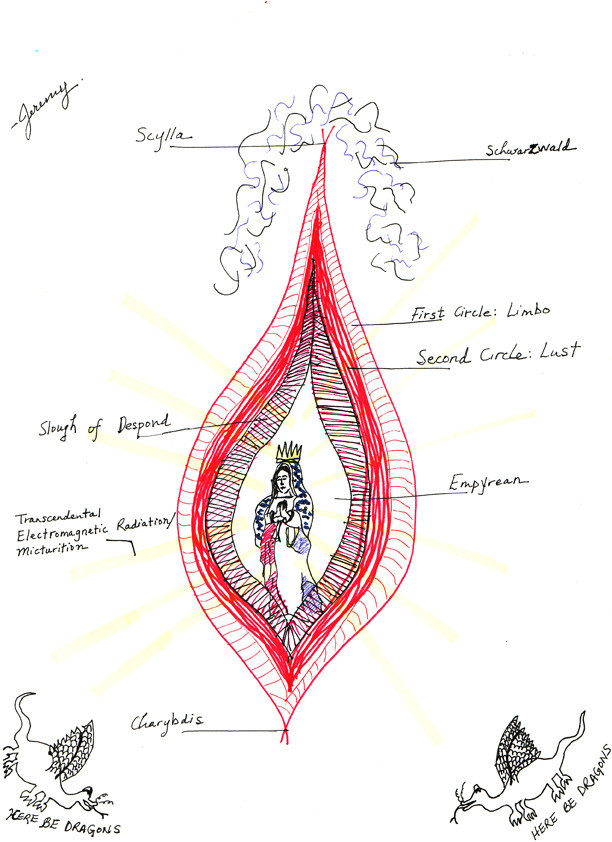 -Jeremy.
Scylla
Schwarzwald
First Circle: Limbo
Second Circle: Lust
Slough of Despond
Empyrean
Transcendental
Electromagnetic Radiation/
Micturition
Charybdis
HERE BE DRAGONS
HERE BE DRAGONS